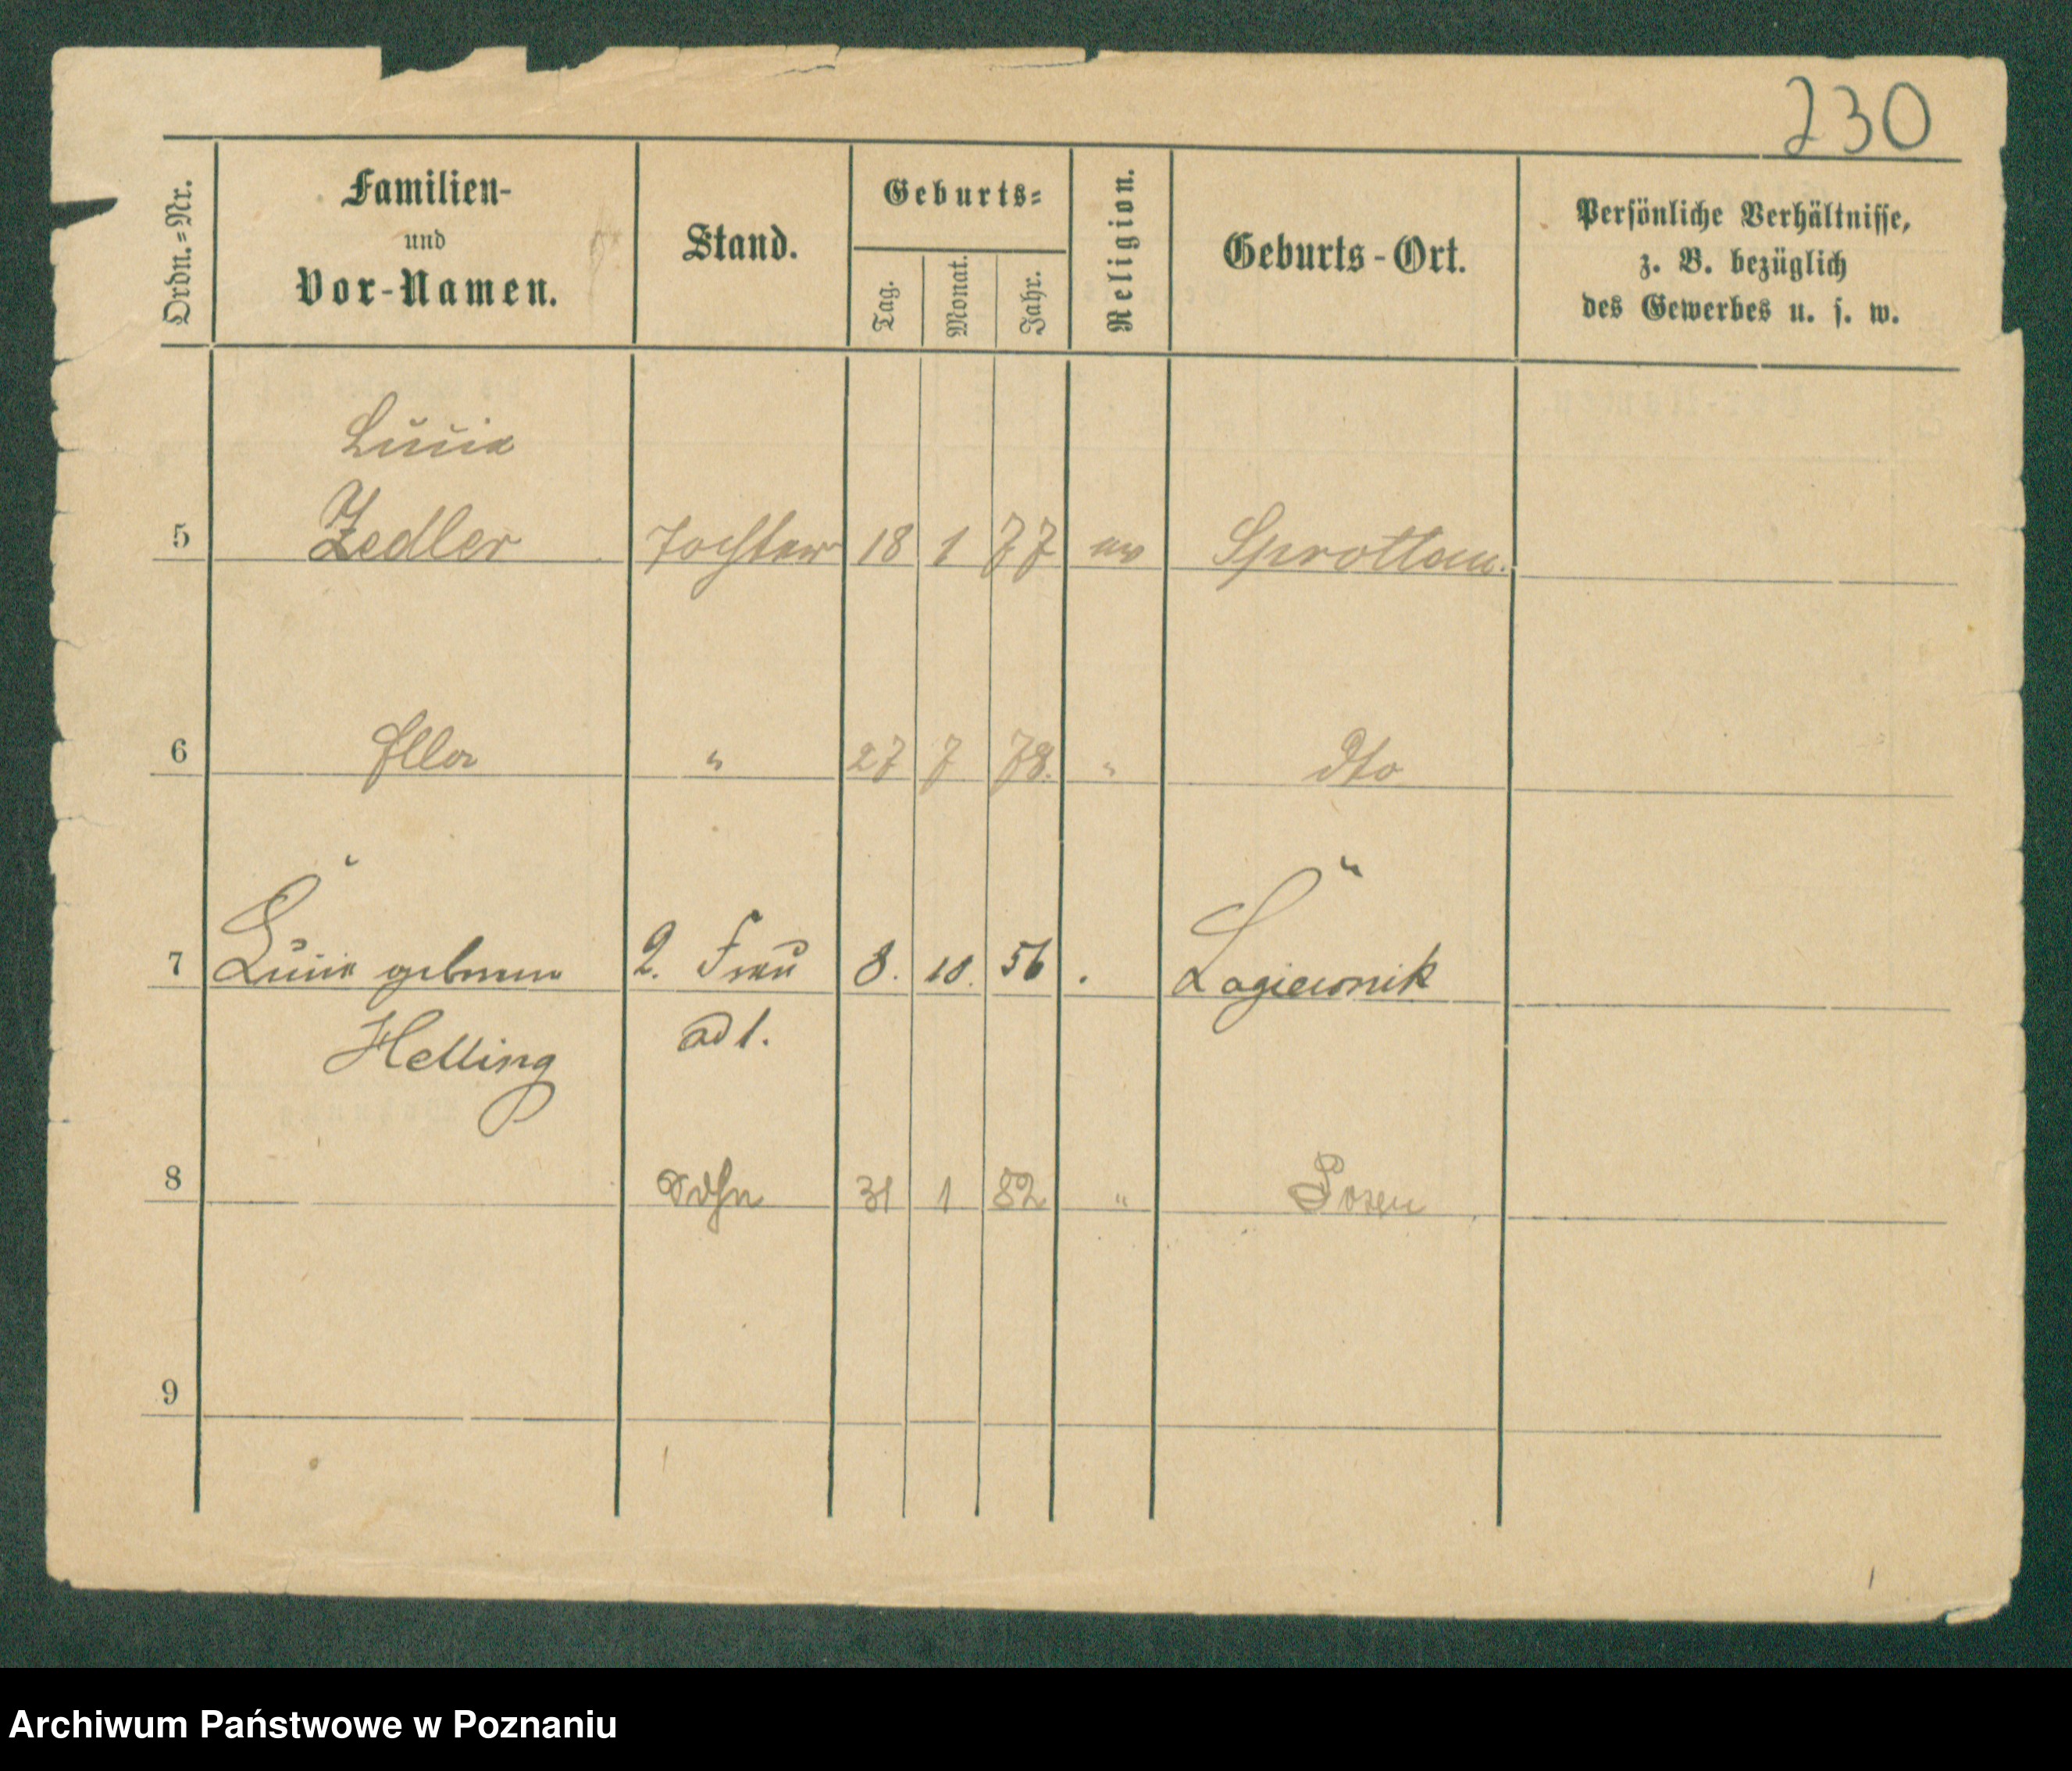 230
Ordn.=Nr. Familien- und Vor-Namen. Stand. Geburts= Tag. Monat. Jahr. Religion. Geburts-Ort. Persönliche Verhältnisse, z. B. bezüglich des Gewerbes u. s. w.
5 Zedler Tochter 18 1 77 ev Sprottau.
6 Ella " 27 7 78. " dto
7 geborene 2. Frau 8. 10. 56 . Lagiewnik
Helling ad 1.
8 Sohn 31 1 82 " Posen
9
Archiwum Państwowe w Poznaniu